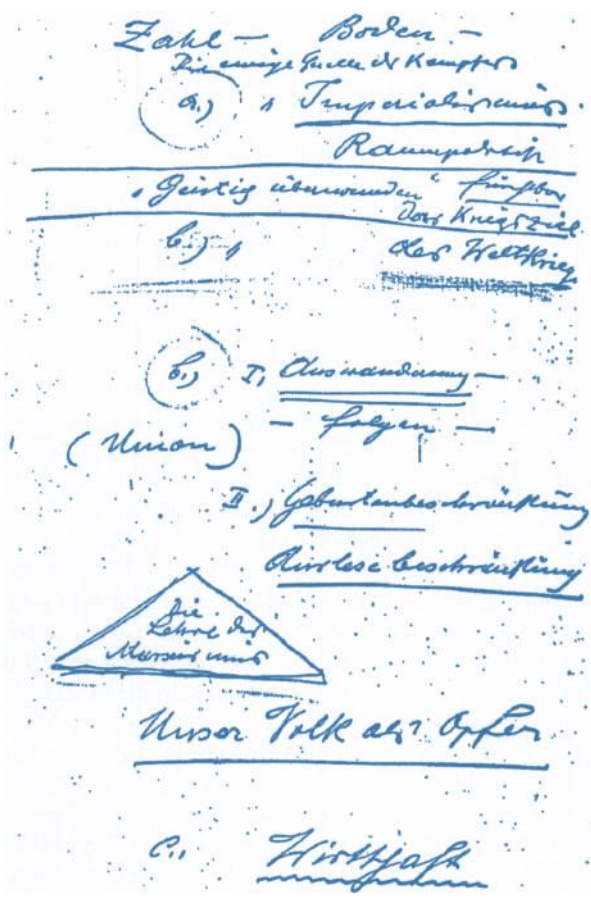 Zahl – Boden –
Die ewige Quelle des Kampfes
a.) 1 Imperialismus.
Raumpolitik
"Geistig überwunden"
Das Kriegsziel
b.) 1 des Weltkrieg
b.) I, Auswanderung –
– folgen –
(Union)
II.) Geburtenbeschränkung
Auslese beschränkung
Die
Lehre des
Marxismus
Unser Volk als Opfer
c., Wirtschaft